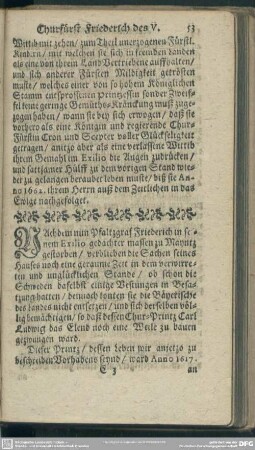 Churfürst Friederich des V. 53
Wittib mit zehen / zum Theil unerzogenen Fürstl.
Kindern / mit welchen sie sich in frembden Landen
als eine von ihrem Land Vertriebene auffhalten /
und sich anderer Fürsten Mildigkeit getrösten
muste / welches einer von so hohem Königlichen
Stamm entsprossenen Printzessin sonder Zweif-
fel keine geringe Gemüths-Kränckung muß zuge-
zogen haben / wann sie bey sich erwogen / daß sie
vorhero als eine Königin und regierende Chur-
Fürstin Cron und Scepter voller Glückseligkeit
getragen / anitzo aber als eine verlassene Wittib
ihrem Gemahl im Exilio die Augen zudrücken /
und sattsamer Hülff zu dem vorigen Stand wie-
der zu gelangen beraubet leben muste / biß sie An-
no 1662. ihrem Herrn auß dem Zeitlichen in das
Ewige nachgefolget.
Nachdem nun Pfaltzgraf Friederich in sei-
nem Exilio gedachter massen zu Mayntz
gestorben / verblieben die Sachen seines
Hauses noch eine geraume Zeit in dem verwirre-
ten und unglücklichen Stande / ob schon die
Schweden daselbst einige Vestungen in Besa-
tzung hatten / dennoch konten sie die Bäyerische
des Landes nicht entsetzen / und sich derselben völ-
lig bemächtigen / so daß dessen Chur-Printz Carl
Ludwig das Elend noch eine Weile zu bauen
gezwungen ward.
Dieser Printz / dessen Leben wir anjetzo zu
beschreiben Vorhabens seynd / ward Anno 1617.
E 3 an